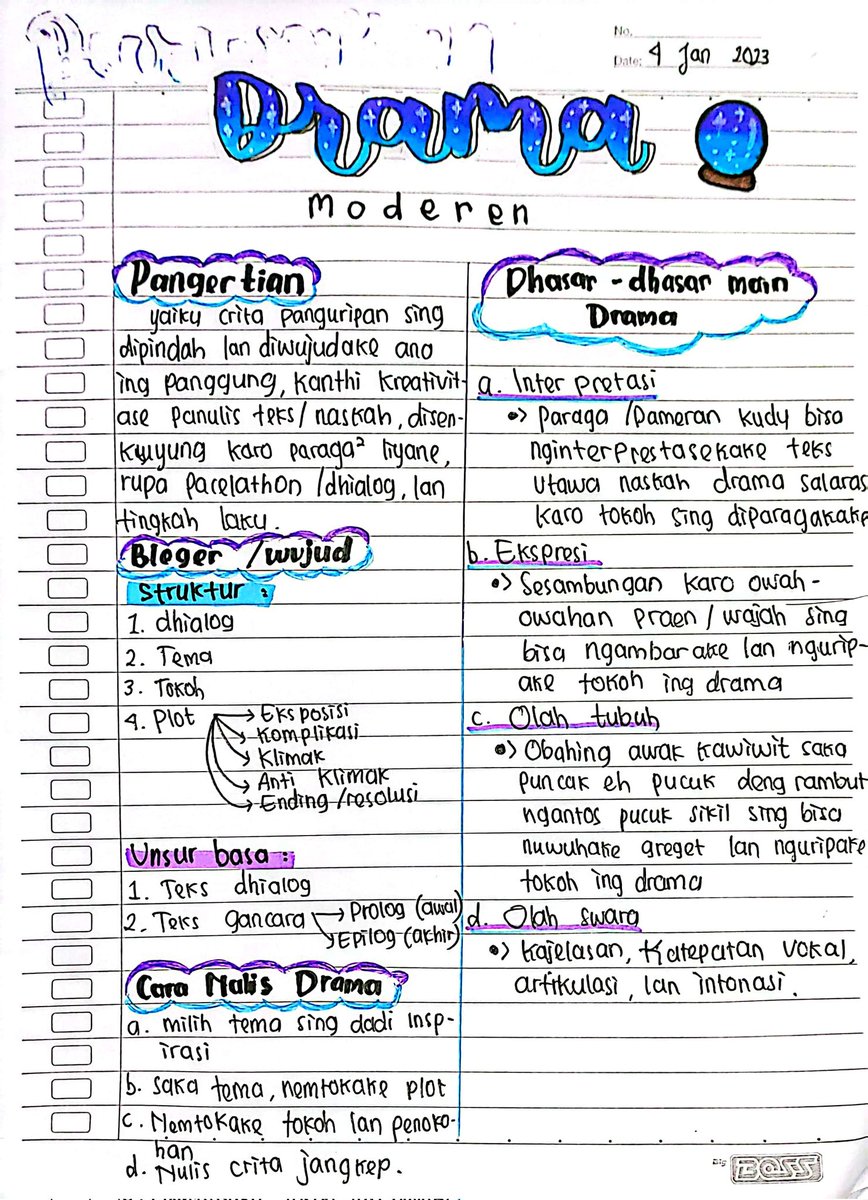 No.
Date: 4 Jan 2023
Drama
moderen
Pangertian
yaiku crita panguripan sing
dipindah lan diwujudake ano
ing panggung, kanthi kreativit-
ase panulis teks/naskah, disen-
kuyung karo paraga² liyane,
rupa pacelathon/dhialog, lan
tingkah laku.
Bleger/wujud
Struktur :
1. dhialog
2. Tema
3. Tokoh
4. Plot → Eksposisi
→ Komplikasi
→ Klimak
→ Anti Klimak
→ Ending/resolusi
Unsur basa :
1. Teks dhialog
2. Teks gancara → Prolog (awal)
→ Epilog (akhir)
Cara Nulis Drama
a. milih tema sing dadi insp-
irasi
b. saka tema, nemtokake plot
c. Nemtokake tokoh lan penoko-
han
d. Nulis crita jangkep.
Dhasar-dhasar main
Drama
a. Inter pretasi
•> Paraga/Pameran kudy biso
nginterprestasekake teks
utawa naskah drama salaras
karo tokoh sing diparagakake
b. Ekspresi
•> Sesambungan karo owah-
owahan praen/wajah sing
bisa ngambarake lan ngurip-
ake tokoh ing drama
c. Olah tubuh
•> Obahing awak kawiwit saka
puncak eh pucuk deng rambut
ngantos pucuk sikil sing biso
nuwuhake greget lan nguripake
tokoh ing drama
d. Olah swara
•> Kajelasan, Katepatan vokal,
artikulasi, lan intonasi.
Big BOSS